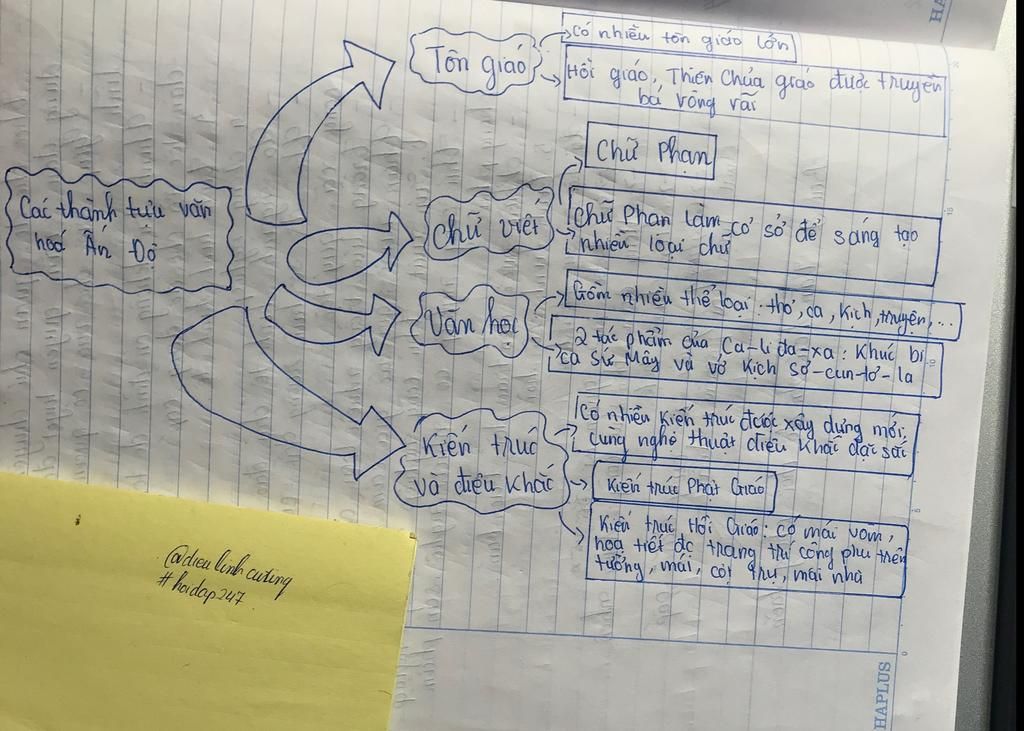 Các thành tựu văn
hoá Ấn Độ
Tôn giáo
Có nhiều tôn giáo lớn
Hồi giáo, Thiên Chúa giáo được truyền
bá vòng vãi
Chữ viết
Chữ Phạn
Chữ Phạn làm cơ sở để sáng tạo
nhiều loại chữ
Văn học
Gồm nhiều thể loại: thơ, ca, kịch, truyện,...
2 tác phẩm của Ca-li đa-xa: Khúc bi
ca Sứ Mây và vở kịch Sơ-cun-tơ-la
Kiến trúc
và điêu khắc
Có nhiều kiến trúc được xây dựng mới,
cùng nghệ thuật điêu khắc đặc sắc
Kiến trúc Phật Giáo
Kiến trúc Hồi Giáo: có mái vòm,
hoạ tiết đc trang trí công phu trên
tường, mái, cột trụ, mái nhà
@dieulinhcuting
#hoidap247
HAPLUS
HA